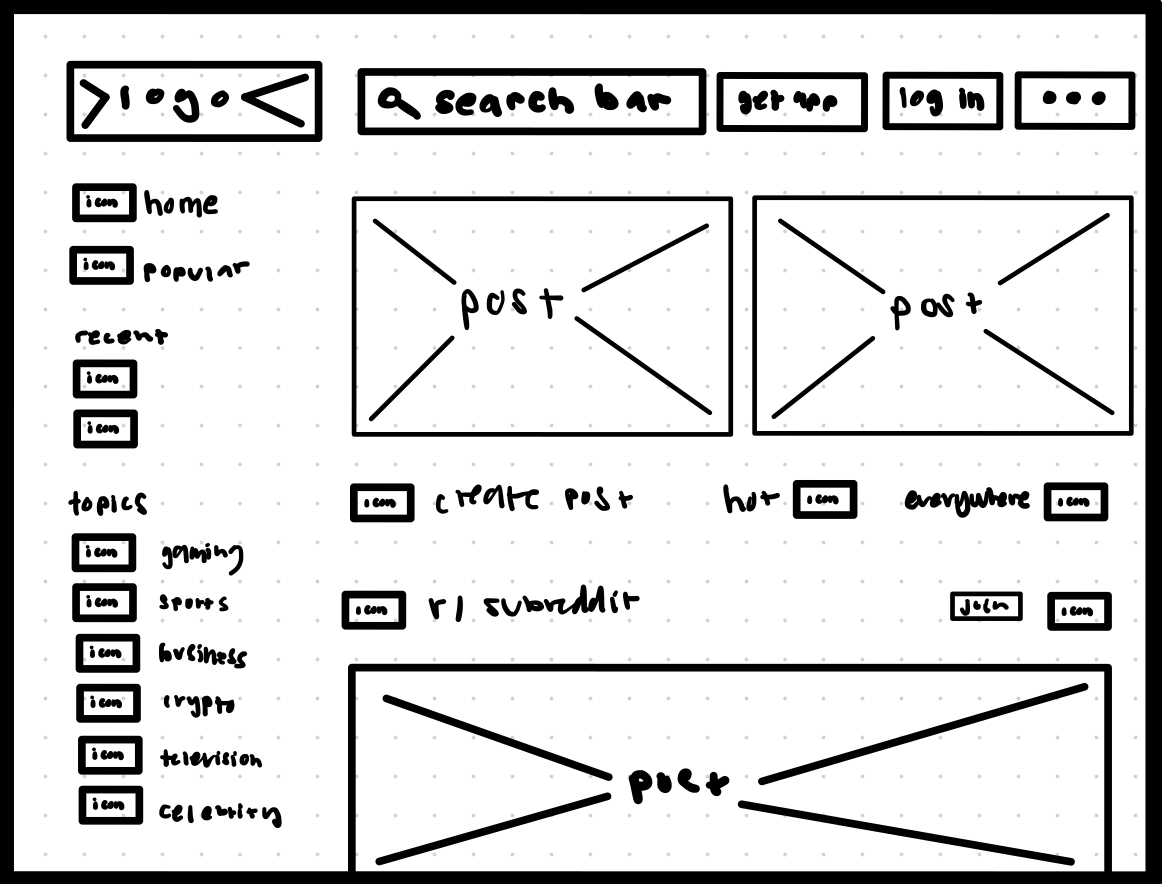 logo
search bar
get app
log in
icon home
icon popular
recent
icon
icon
topics
icon gaming
icon sports
icon business
icon crypto
icon television
icon celebrity
post
post
icon create post
hot icon
everywhere icon
icon r/ subreddit
join
icon
post